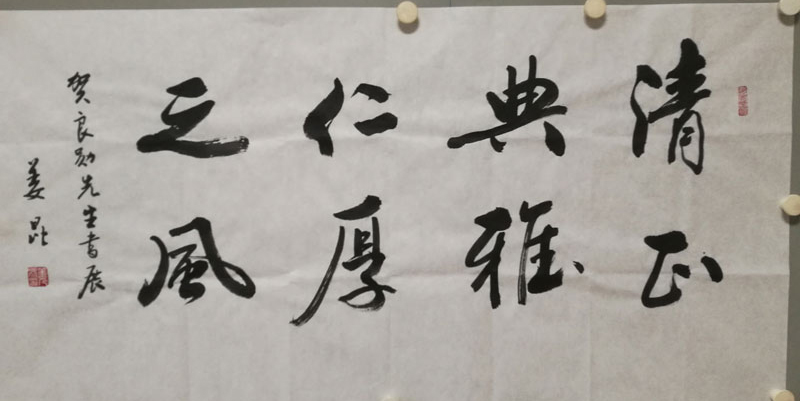 清正
典雅
仁厚
之風
贺良勋先生书展
姜昆